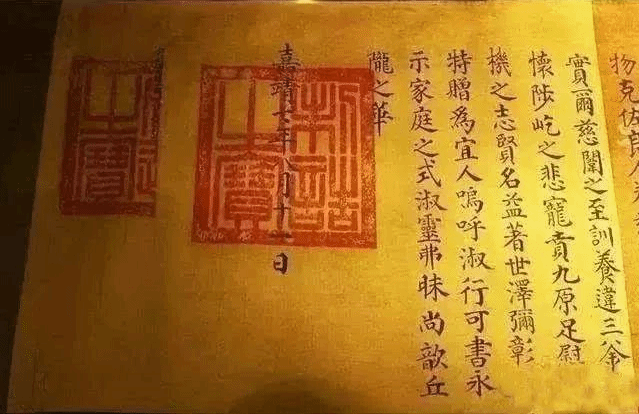 物克佐
實爾慈闈之至訓養違三釜
懷陟屺之悲寵賁九原足慰
機之志賢名益著世澤彌彰
特贈為宜人嗚呼淑行可書永
示家庭之式淑靈弗昧尚歆丘
隴之華
嘉靖七年八月十一日
制誥之寶
之寶